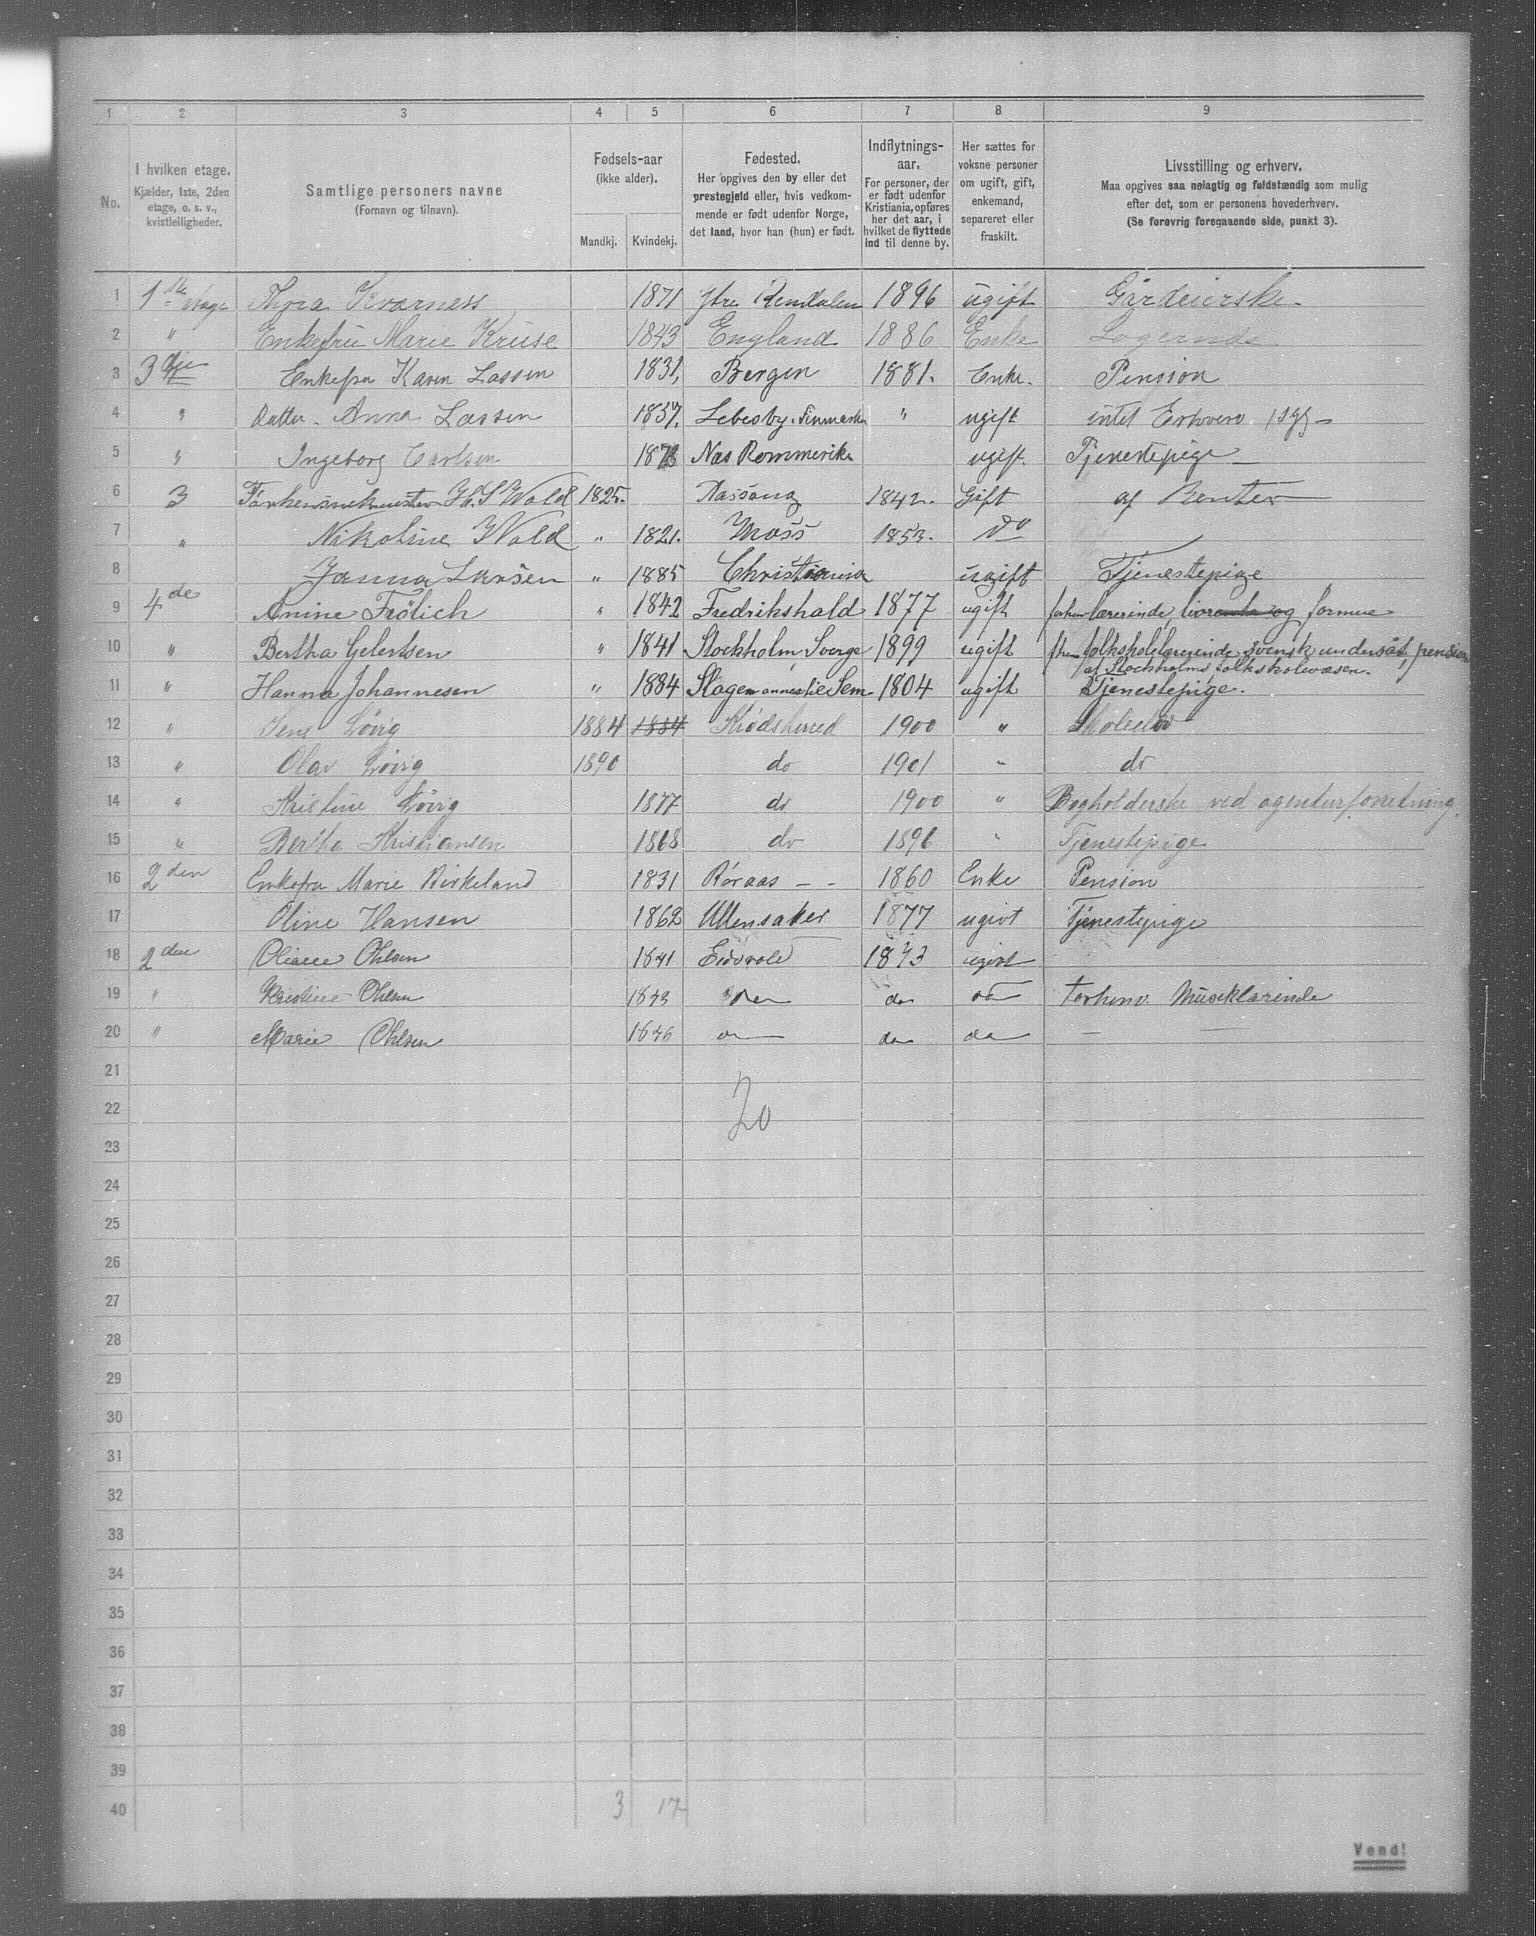 1 2 3 4 5 6 7 8 9
No.
I hvilken etage.
Kjælder, 1ste, 2den
etage, o. s. v.,
kvistleiligheder.
Samtlige personers navne
(Fornavn og tilnavn).
Fødsels-aar
(ikke alder).
Mandkj. Kvindekj.
Fødested.
Her opgives den by eller det
prestegjeld eller, hvis vedkom-
mende er født udenfor Norge,
det land, hvor han (hun) er født.
Indflytnings-
aar.
For personer, der
er født udenfor
Kristiania, opføres
her det aar, i
hvilket de flyttede
ind til denne by.
Her sættes for
voksne personer
om ugift, gift,
enkemand,
separeret eller
fraskilt.
Livsstilling og erhverv.
Maa opgives saa nøiagtig og fuldstændig som mulig
efter det, som er personens hovederhverv.
(Se forøvrig foregaaende side, punkt 3).
1 1ste etage Thora Kvarness 1871 Ytre Rendalen 1896 ugift Gårdeierske
2 " Enkefru Marie Kruse 1843 England 1886 Enke Logerende
3 3dje Enkefru Karen Lassen 1831, Bergen 1881. Enke. Pension
4 " Datter. Anna Lassen 1857. Lebesby. Finmarken " ugift intet Erhverv
5 " Ingeborg Carlsen 1873 Næs Rommerike ugift. Tjenestepige
6 3 Wold 1825. 1842. Gift af Renter
7 " Nikoline Wold " 1821. Moss 1853. do
8 Janna Larsen " 1885 Christiania ugift Tjenestepige
9 4de Anine Frölich " 1842 Fredrikshald 1877 ugift forhen lærerinde, livrente og formue
10 " Bertha Gelertsen " 1841 Stockholm, Sverge 1899 ugift fhen folkskolelærerinde, svensk undersåt, pension
af Stockholms folkskolevæsen.
11 " Hanna Johannesen " 1884 Slagen annex til Sem 1804 ugift Tjenestepige.
12 " Jens Lövig 1884 1884 Krødsherred 1900 " Skoleelev
13 " Olav Lövig 1890 do 1901 " do
14 " Kristine Lövig 1877 do 1900 " Bogholderske ved agenturforretning.
15 " Bertha Kristiansen 1868 do 1896 " Tjenestepige
16 2den Enkefru Marie Birkeland 1831 Röraas - - 1860 Enke Pension
17 Oline Hansen 1862 Ullensaker 1877 ugivt Tjenestepige
18 2den Ohlsen 1841 Eidsvold 1873 ugivt
19 " Kristine Ohlsen 1843 do do Forhenv. Musiklærinde
20 " Marie Ohlsen 1846 do do
21
22
20
23
24
25
26
27
28
29
30
31
32
33
34
35
36
37
38
39
40 3 17
Vend!